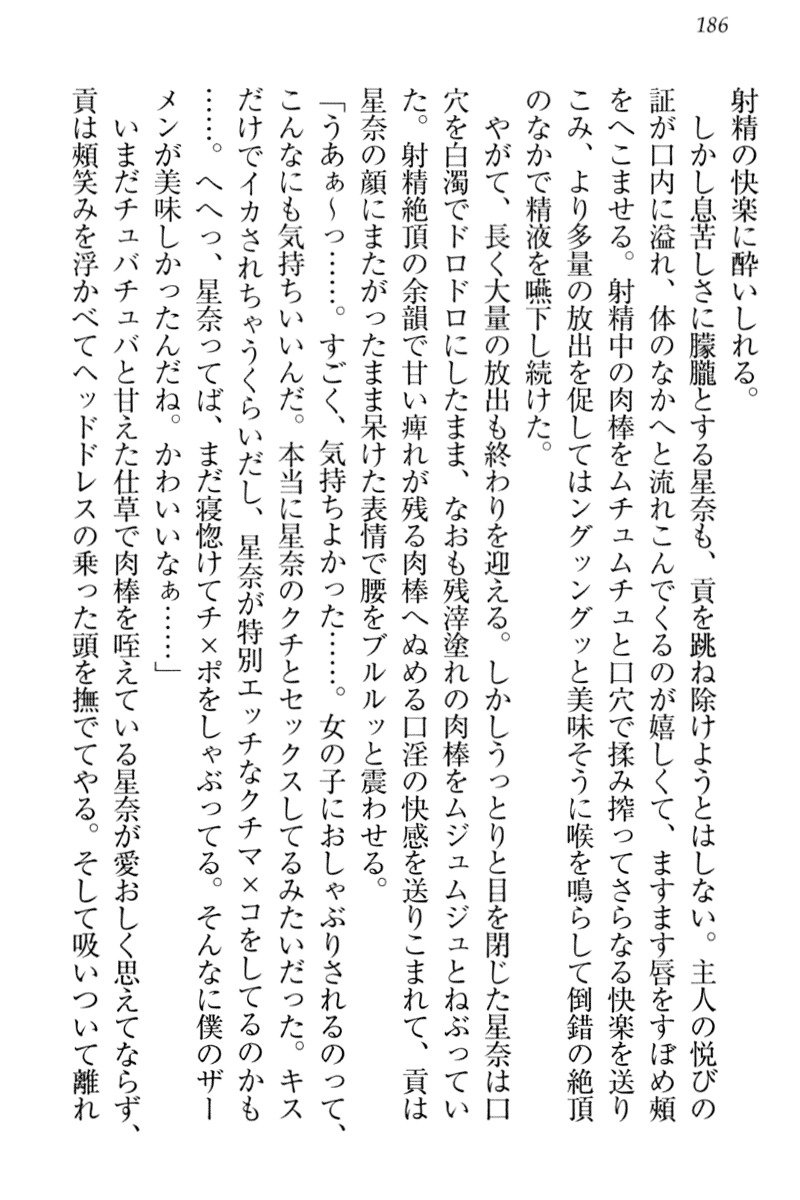 186
射精の快楽に酔いしれる。
　しかし息苦しさに朦朧とする星奈も、貢を跳ね除けようとはしない。主人の悦びの
証が口内に溢れ、体のなかへと流れこんでくるのが嬉しくて、ますます唇をすぼめ頬
をへこませる。射精中の肉棒をムチュムチュと口穴で揉み搾ってさらなる快楽を送り
こみ、より多量の放出を促してはングッングッと美味そうに喉を鳴らして倒錯の絶頂
のなかで精液を嚥下し続けた。
　やがて、長く大量の放出も終わりを迎える。しかしうっとりと目を閉じた星奈は口
穴を白濁でドロドロにしたまま、なおも残滓塗れの肉棒をムジュムジュとねぶってい
た。射精絶頂の余韻で甘い痺れが残る肉棒へぬめる口淫の快感を送りこまれて、貢は
星奈の顔にまたがったまま呆けた表情で腰をブルルッと震わせる。
「うあぁ～っ……。すごく、気持ちよかった……。女の子におしゃぶりされるのって、
こんなにも気持ちいいんだ。本当に星奈のクチとセックスしてるみたいだった。キス
だけでイカされちゃうくらいだし、星奈が特別エッチなクチマ×コをしてるのかも
……。へへっ、星奈ってば、まだ寝惚けてチ×ポをしゃぶってる。そんなに僕のザー
メンが美味しかったんだね。かわいいなぁ……」
　いまだチュバチュバと甘えた仕草で肉棒を咥えている星奈が愛おしく思えてならず、
貢は頬笑みを浮かべてヘッドドレスの乗った頭を撫でてやる。そして吸いついて離れ